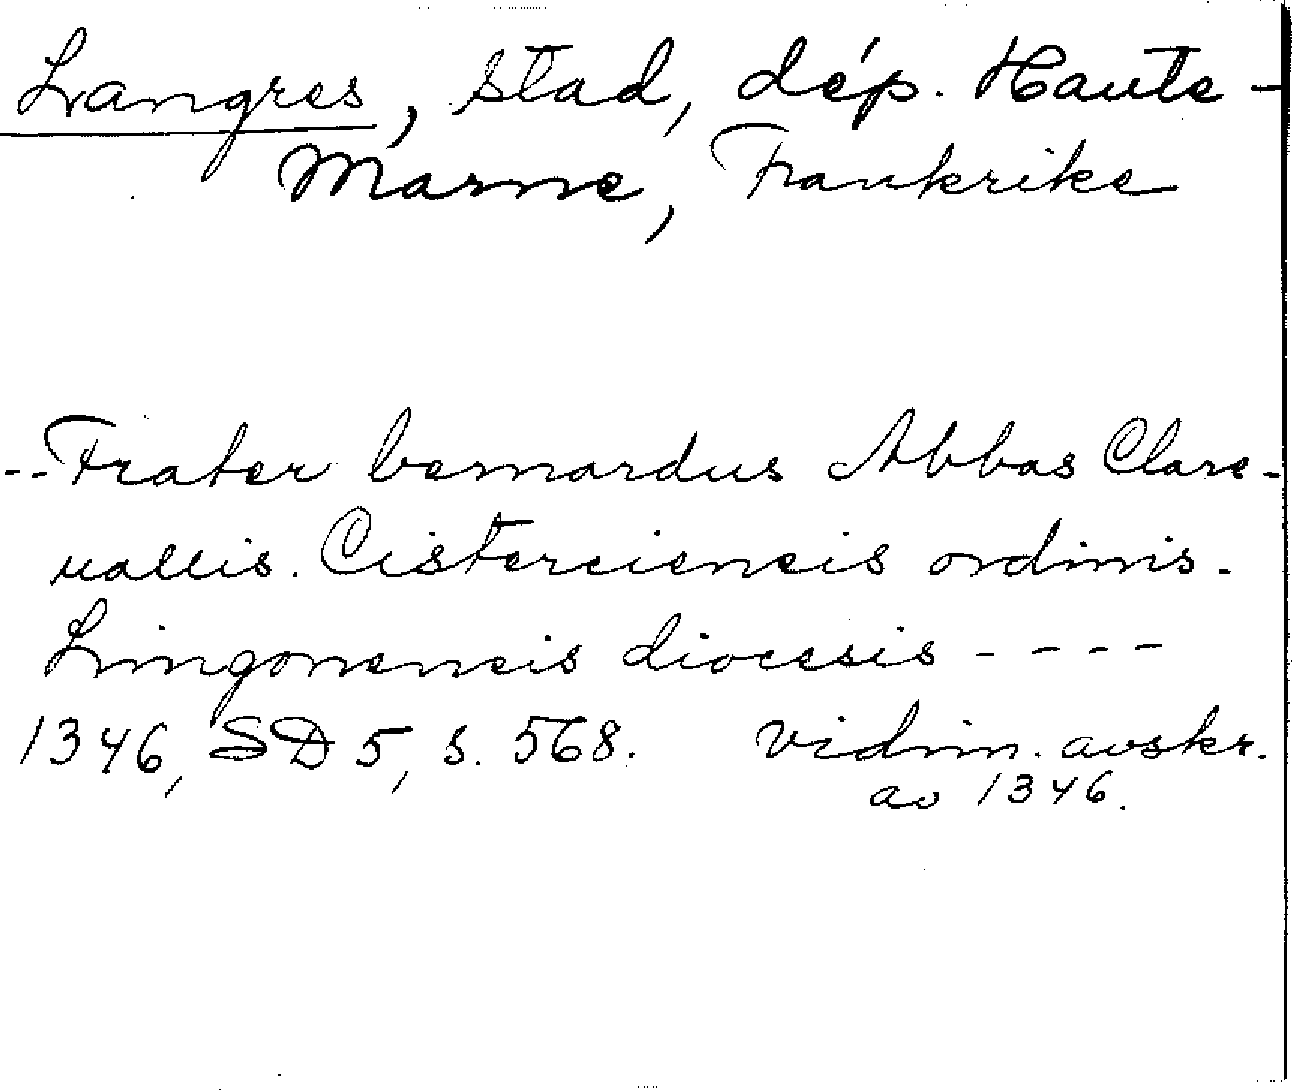 Langres, stad, dép. Haute-
Marne, Frankrike
--Frater bernardus Abbas Clare-
uallis. Cisterciencis ordinis.
Lingonencis diocesis ----
1346, SD 5, s. 568. Vidim. avskr.
av 1346.